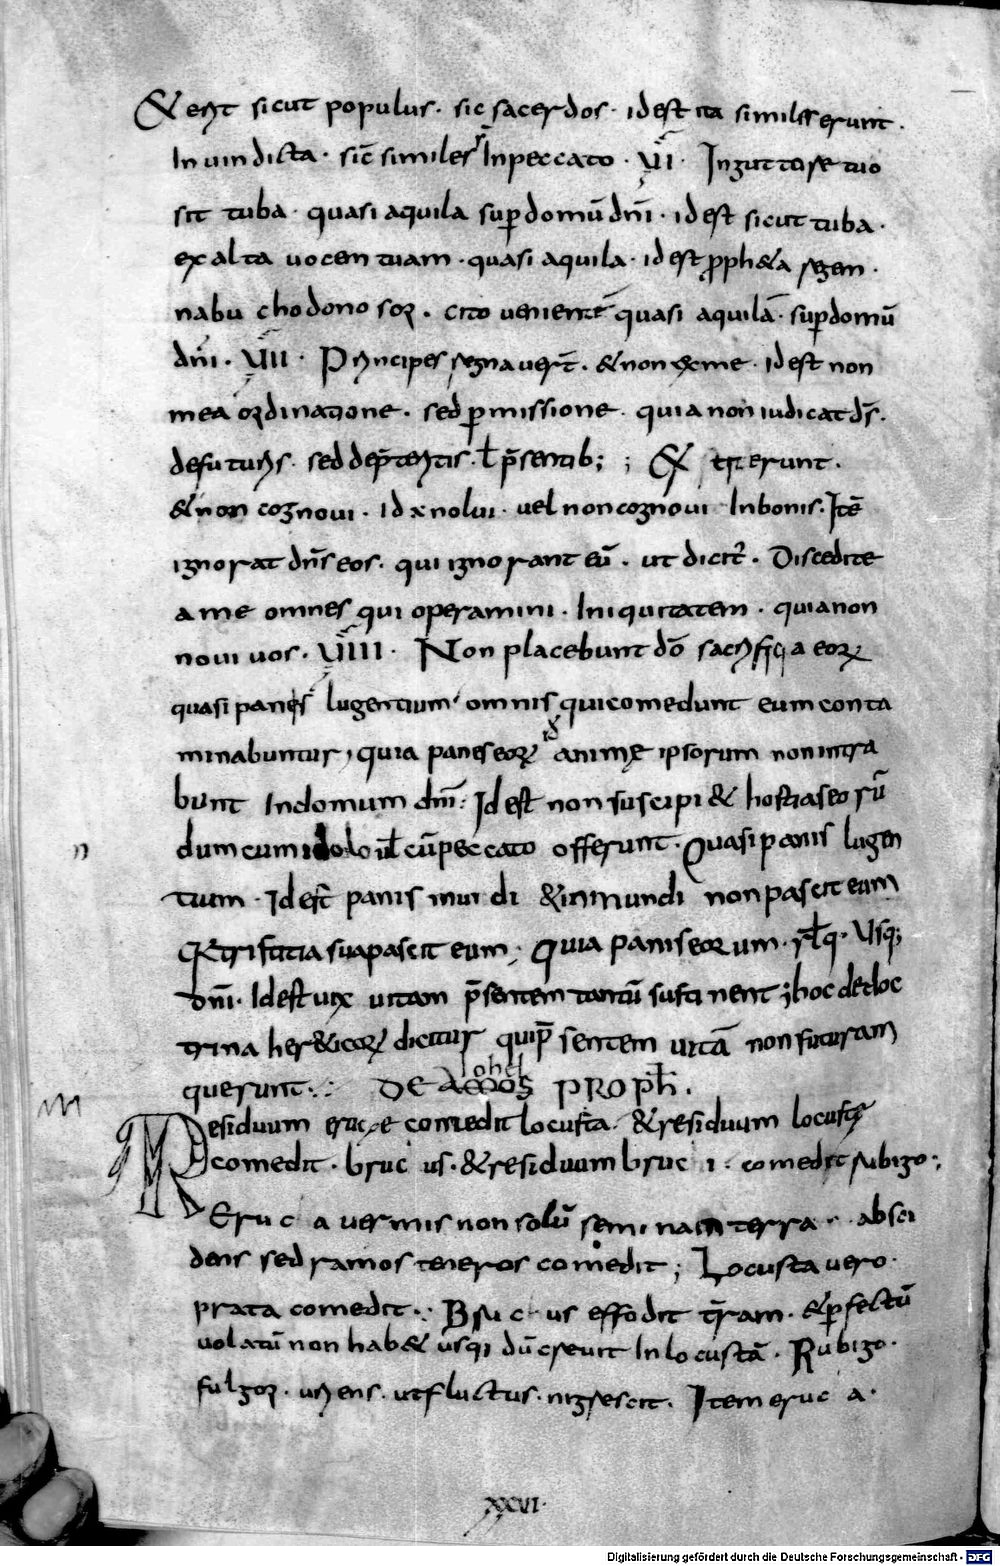 & erit sicut populus · sic sacerdos · id est ita similes erunt ·
In uindicta · sic̄ similes In peccato · VII · In gutture tuo
sit tuba · quasi aquila sup domū dn̄i · id est sicut tuba ·
exalta uocem tuam · quasi aquila · id est proph&a regem ·
nabu chodono sor · cito uenientē quasi aquilā · sup domū
dn̄i · VIII · Principes regnauer̄ · & non ex me · id est non
mea ordinatione · sed pmissione · quia non iudicat ds̄ ·
de futuris · sed de p̄teritis · ł p̄sentib; ; &
& non cognoui · id x nolui · uel non cognoui In bonis · Itē
ignorat dn̄s eos · qui ignorant eū · ut dicit̄ · Discedite
a me omnes qui operamini · Iniquitatem · quia non
noui uos · VIIII · Non placebunt dō sacrificia eoꝝ
quasi panes lugentium · omnis qui comedunt eum conta
minabuntur, quia panes eoꝝ animę ipsorum non intra
bunt In domum dn̄i : Id est non suscipi& hostias eorū
dum cum idolo uł cū peccato offerunt · Quasi panis lugen
tium · Id est panis inui di & inmundi non pascit eum
sua pascit eum ; Quia panis eorum · rłq · Usq;
dn̄i · Id est uix uitam p̄sentem tantū sustinent ; hoc de doc
trina her&icoꝝ dicitur qui p̄sentem uitā non futuram
querunt · : DE AMOS PROPħ ·
ohel
Residuum erucę comedit locusta · & residuum locustę
comedit · bruc us · & residuum bruc i · comedit rubigo · ,
Eruc a uermis non solū semina in terra · absci
dens sed ramos teneros comedit ; Locusta uero ·
prata comedit · : Bruc us effodit t̄ram · & pfectū
uolatū non hab& usqi dū creuit In locustā · Rubigo ·
fulgor · urens · ut fluctus · nigrescit · Item eruc a ·
XXVI ·
Digitalisierung gefördert durch die Deutsche Forschungsgemeinschaft - DFG